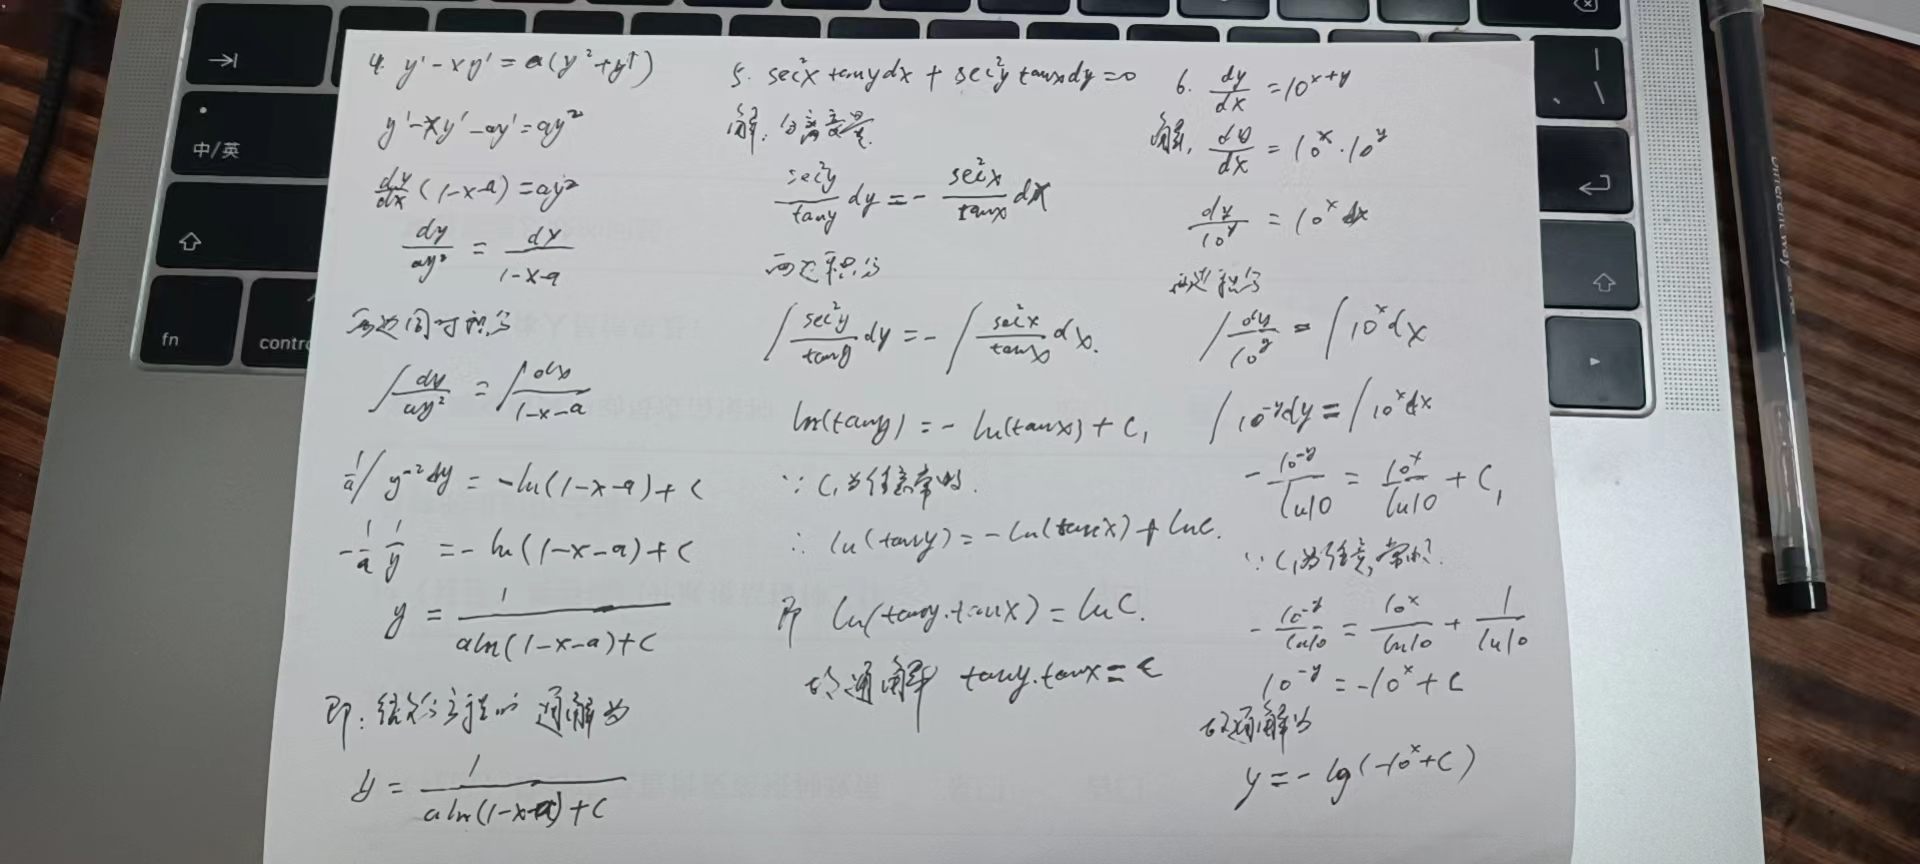 4. y' - xy' = a(y² + y')
y' - xy' - ay' = ay²
dy/dx (1-x-a) = ay²
dy/ay² = dx/1-x-a
两边同时积分
∫ dy/ay² = ∫ dx/1-x-a
1/a ∫ y⁻² dy = -ln(1-x-a) + C
-1/a 1/y = -ln(1-x-a) + C
y = 1/aln(1-x-a)+C
即: 微分方程的通解为
y = 1/aln(1-x-a)+C
5. sec²x tany dx + sec²y tanx dy = 0
解: 分离变量
sec²y/tany dy = - sec²x/tanx dx
两边积分
∫ sec²y/tany dy = - ∫ sec²x/tanx dx.
ln(tany) = - ln(tanx) + C₁
∵ C₁为任意常数.
∴ ln(tany) = - ln(tanx) + lnC.
即 ln(tany·tanx) = lnC.
故通解 tany·tanx = C
6. dy/dx = 10^(x+y)
解: dy/dx = 10^x · 10^y
dy/10^y = 10^x dx
两边积分
∫ dy/10^y = ∫ 10^x dx
∫ 10^(-y) dy = ∫ 10^x dx
- 10^(-y)/ln10 = 10^x/ln10 + C₁
∵ C₁为任意常数.
- 10^(-y)/ln10 = 10^x/ln10 + 1/ln10
10^(-y) = -10^x + C
故通解为
y = - lg(-10^x + C)
中/英
fn
contro
Different way